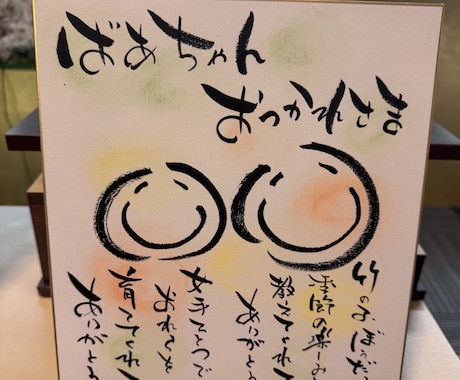 ばあちゃん
おつかれさま
竹の子ぼうだ
季節の楽しみ
教えてくれ
ありがと
女手ひとつで
育ててくれ
ありがとう